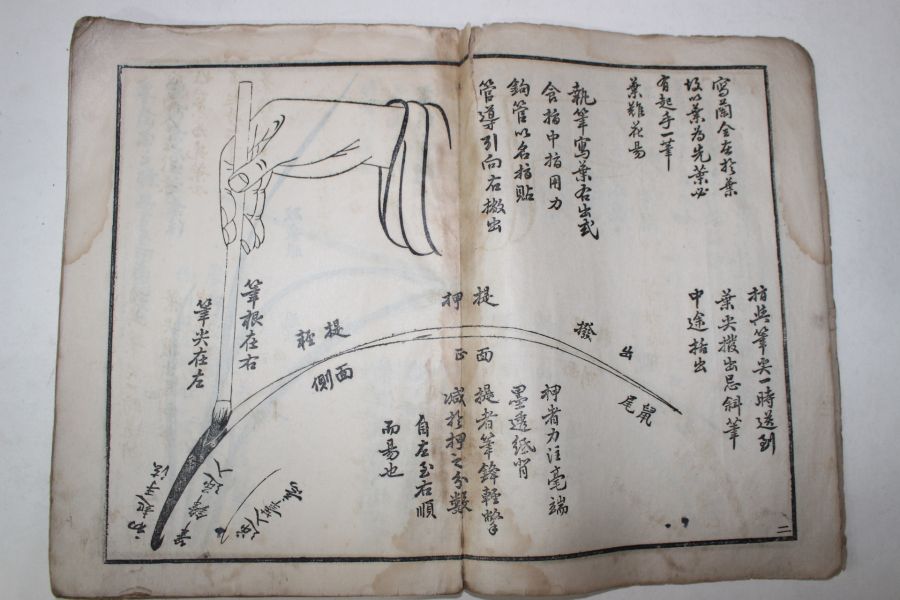 寫蘭全在於葉
故以葉為先葉必
有起手一筆
葉難花易
執筆寫葉右出式
食指中指用力
鉤管以名指貼
管導引向右撇出
指與筆尖一時送到
葉尖撥出忌斜筆
中途拈出
出
撥
鼠尾
提
押
面
正
提
輕
面
側
押者力注毫端
墨透紙背
提者筆鋒輕撆
減於押之分數
自左至右順
而易也
筆根在右
筆尖在左
筆鋒逆入
初起手法
二